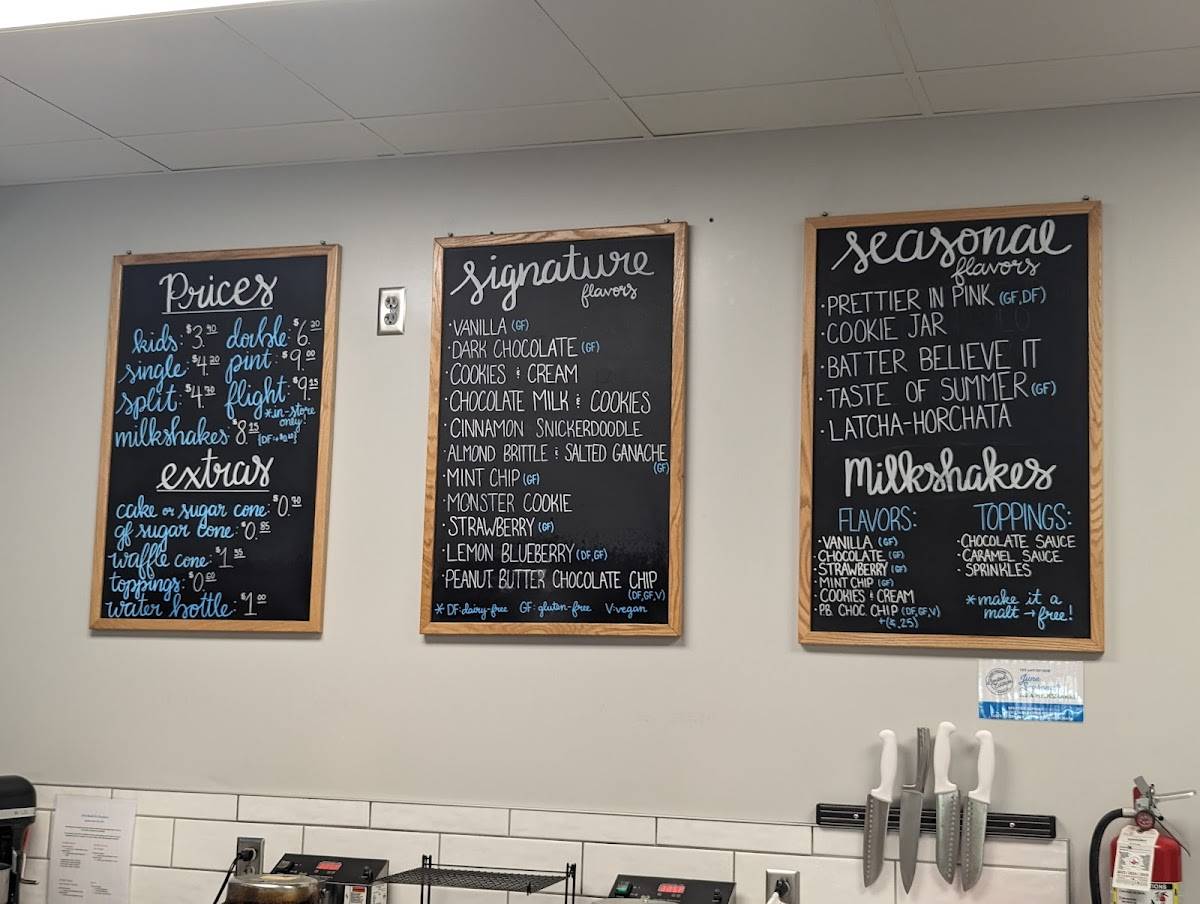 Prices
kids: $3.90 double: $6.20
single: $4.20 pint: $9.00
split: $4.70 flight: $9.15
*in-store only!
milkshakes: $8.15
extras
cake or sugar cone: $0.70
gf sugar cone: $0.85
waffle cone: $1.55
toppings: $0.60
water bottle: $1.00
signature
flavors
·VANILLA (GF)
·DARK CHOCOLATE (GF)
·COOKIES & CREAM
·CHOCOLATE MILK & COOKIES
·CINNAMON SNICKERDOODLE
·ALMOND BRITTLE & SALTED GANACHE
(GF)
·MINT CHIP (GF)
·MONSTER COOKIE
·STRAWBERRY (GF)
·LEMON BLUEBERRY (DF,GF)
·PEANUT BUTTER CHOCOLATE CHIP
(DF,GF,V)
* DF: dairy-free GF: gluten-free V: vegan
seasonal
flavors
·PRETTIER IN PINK (GF,DF)
·COOKIE JAR
·BATTER BELIEVE IT
·TASTE OF SUMMER (GF)
·LATCHA-HORCHATA
Milkshakes
FLAVORS: TOPPINGS:
·VANILLA (GF) ·CHOCOLATE SAUCE
·CHOCOLATE (GF) ·CARAMEL SAUCE
·STRAWBERRY (GF) ·SPRINKLES
·MINT CHIP (GF)
·COOKIES & CREAM *make it a
·PB CHOC CHIP (DF,GF,V) malt → free!
June